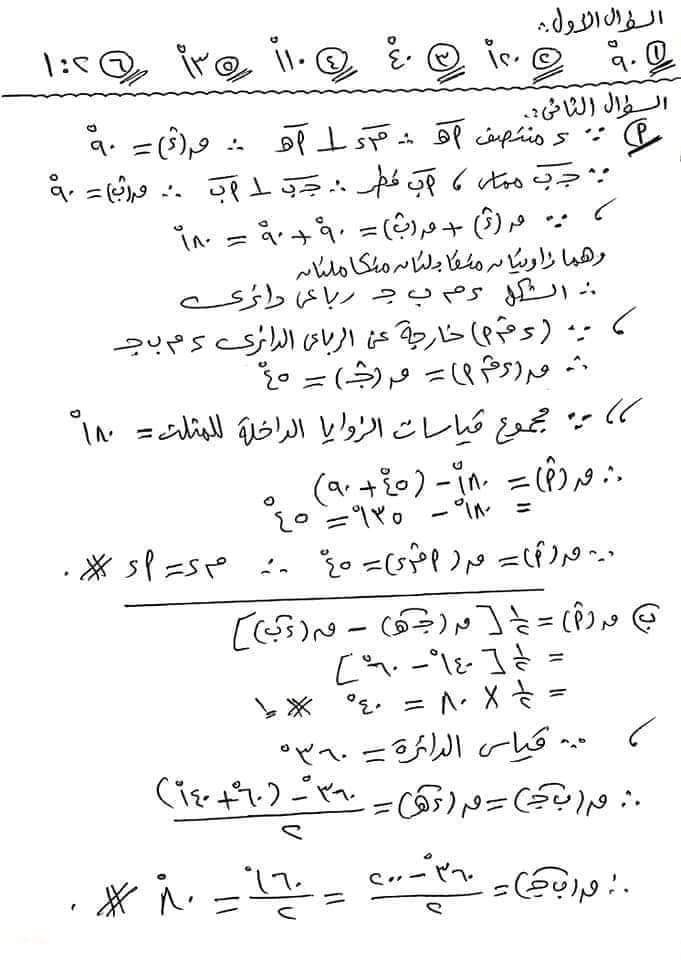 السؤال الأول:
① ٩٠° ② ١٢٠° ③ ٤٠° ④ ١١٠° ⑤ ١٣٠° ⑥ ١:٢
السؤال الثانى:
Ⓟ ∵ ء منتصف اهـ ∴ مء ⊥ اهـ ∴ ق(ءˆ) = ٩٠°
∵ جـب مماس ، اب قطر ∴ جـب ⊥ اب ∴ ق(بˆ) = ٩٠°
، ∵ ق(ءˆ) + ق(بˆ) = ٩٠° + ٩٠° = ١٨٠°
وهما زاويتان متقابلتان متكاملتان
∴ الشكل ء م ب جـ رباعى دائرى
، ∵ (ء مˆ ا) خارجة عن الرباعى الدائرى ء م ب جـ
∴ ق(ء مˆ ا) = ق(جـˆ) = ٤٥°
،، ∵ مجموع قياسات الزوايا الداخلة للمثلث = ١٨٠°
∴ ق(اˆ) = ١٨٠° − (٤٥° + ٩٠)
= ١٨٠° − ١٣٥° = ٤٥°
∵ ق(اˆ) = ق(ا مˆ ء) = ٤٥° ∴ مء = اء #.
ب) ق(اˆ) = ١/٢ [ق(جـهـ) − ق(ءب)]
= ١/٢ [١٤٠° − ٦٠°]
= ١/٢ × ٨٠ = ٤٠° # ١
، ∵ قياس الدائرة = ٣٦٠°
∴ ق(بجـ) = ق(ءهـ) = (٣٦٠° − (٦٠° + ١٤٠°))/٢
∴ ق(بجـ) = (٣٦٠° − ٢٠٠)/٢ = ١٦٠°/٢ = ٨٠° #.